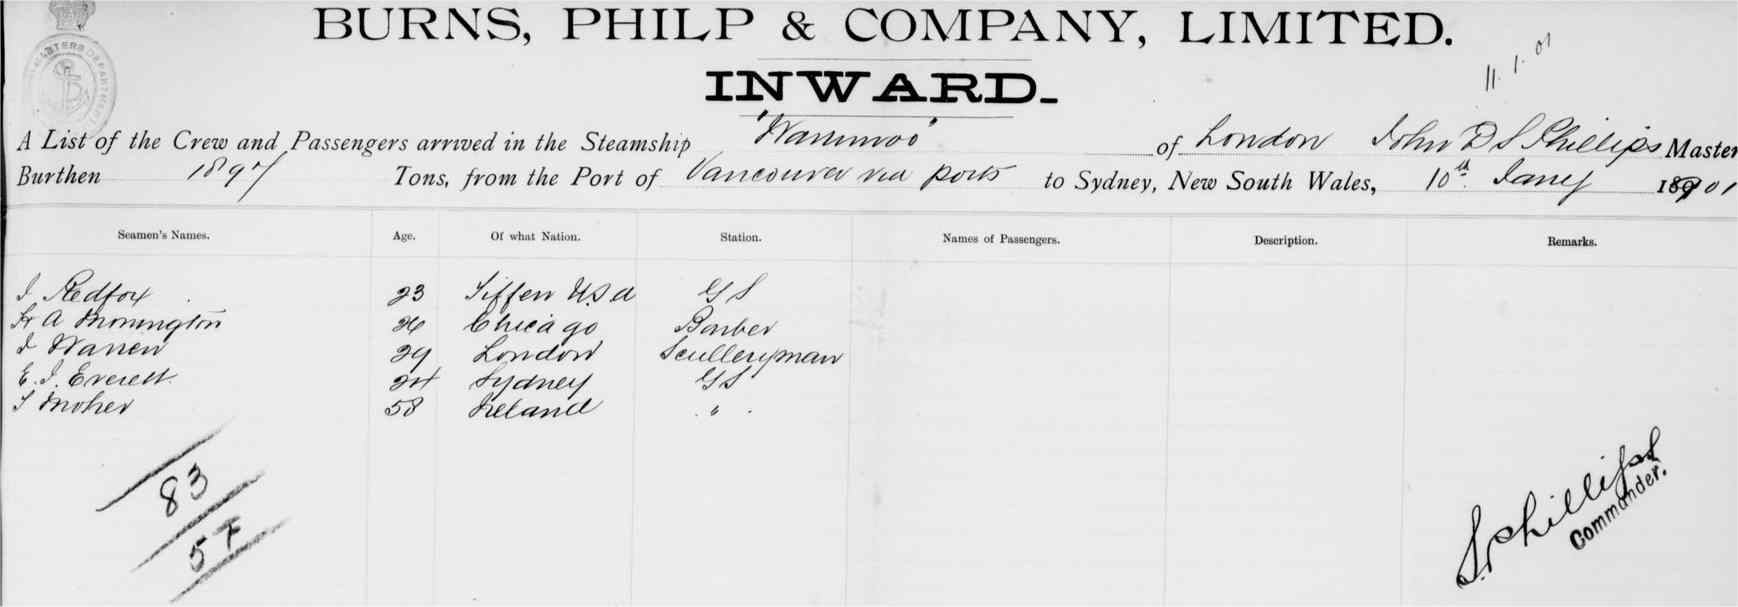 BURNS, PHILP & COMPANY, LIMITED.
INWARD.
11.1.01
A List of the Crew and Passengers arrived in the Steamship "Warrimoo" of London John D S Phillips Master
Burthen 1897 Tons, from the Port of Vancouver via ports to Sydney, New South Wales, 10th Jany 1901
Seamen's Names. Age. Of what Nation. Station. Names of Passengers. Description. Remarks.
J. Redfox 23 Tiffen U.S.A G S
A Monington 26 Chicago Barber
J Warren 29 London Sculleryman
E. J. Everett 24 Sydney G S
T Moher 58 Ireland "
83
57
Phillips
Commander.